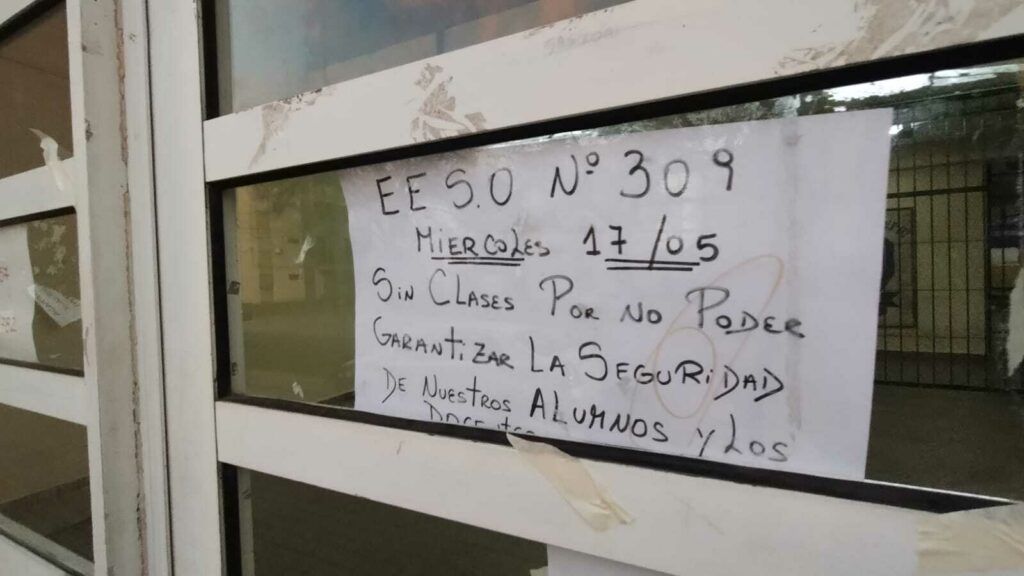 EE S.O Nº 309
MIERCOLES 17/05
SIN CLASES POR NO PODER
GARANTIZAR LA SEGURIDAD
DE NUESTROS ALUMNOS Y LOS